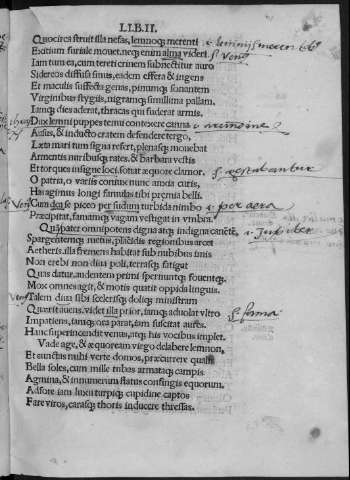 LIB.II.
Quocirca struit illa nefas, lemnoq; merenti i. lemnijs
Exitium furiale mouet. neq; enim alma videri
Iam tum ea, cum tereti crinem subnectitur auro
Sidereos diffusa sinus, eadem effera & ingens
Et maculis suffecta genas, pinumq; sonantem
Virginibus stygiis, nigramq; simillima pallam.
Iamq; dies aderat, thracas qui fuderat armis.
Dux lemni puppes tenui contexere canna
Ausus, & inducto cratem defendere tergo,
Læta mari tum signa refert, plenasq; mouebat
Armentis nuribusq; rates. & barbara vestis
Et torques insigne loci. sonat æquore clamor.
O patria, o variis coniux nunc anxia curis,
Has agimus longi famulas tibi premia belli.
Cum dea se piceo per sudum turbida nimbo i per aera
Præcipitat, famamq; vagam vestigat in vmbra.
Quā pater omnipotens digna atq; indigna canētē, i. Jupiter
Spargentemq; metus, placidis regionibus arcet
Aetheris. illa fremens habitat sub nubibus imis
Non erebi non diua poli, terrasq; fatigat
Quas datur, audentem primi spernuntq; fouentq;.
Mox omnes agit, & motis quatit oppida linguis.
Talem diua sibi scelerisq; doliq; ministram
Quærit auens. videt illa prior, iamq; aduolat vltro
Impatiens, iamq; ora parat, iam suscitat aures.
Hanc super incendit venus, atq; his vocibus implet.
Vade age, & æquoream virgo delabere lemnon,
Et cunctas mihi verte domos, præcurrere qualis
Bella soles, cum mille tubas armataq; campis
Agmina, & innumerum flatus confingis equorum.
Adfore iam luxu turpiq; cupidine captos
Fare viros, carasq; thoris inducere thressas.